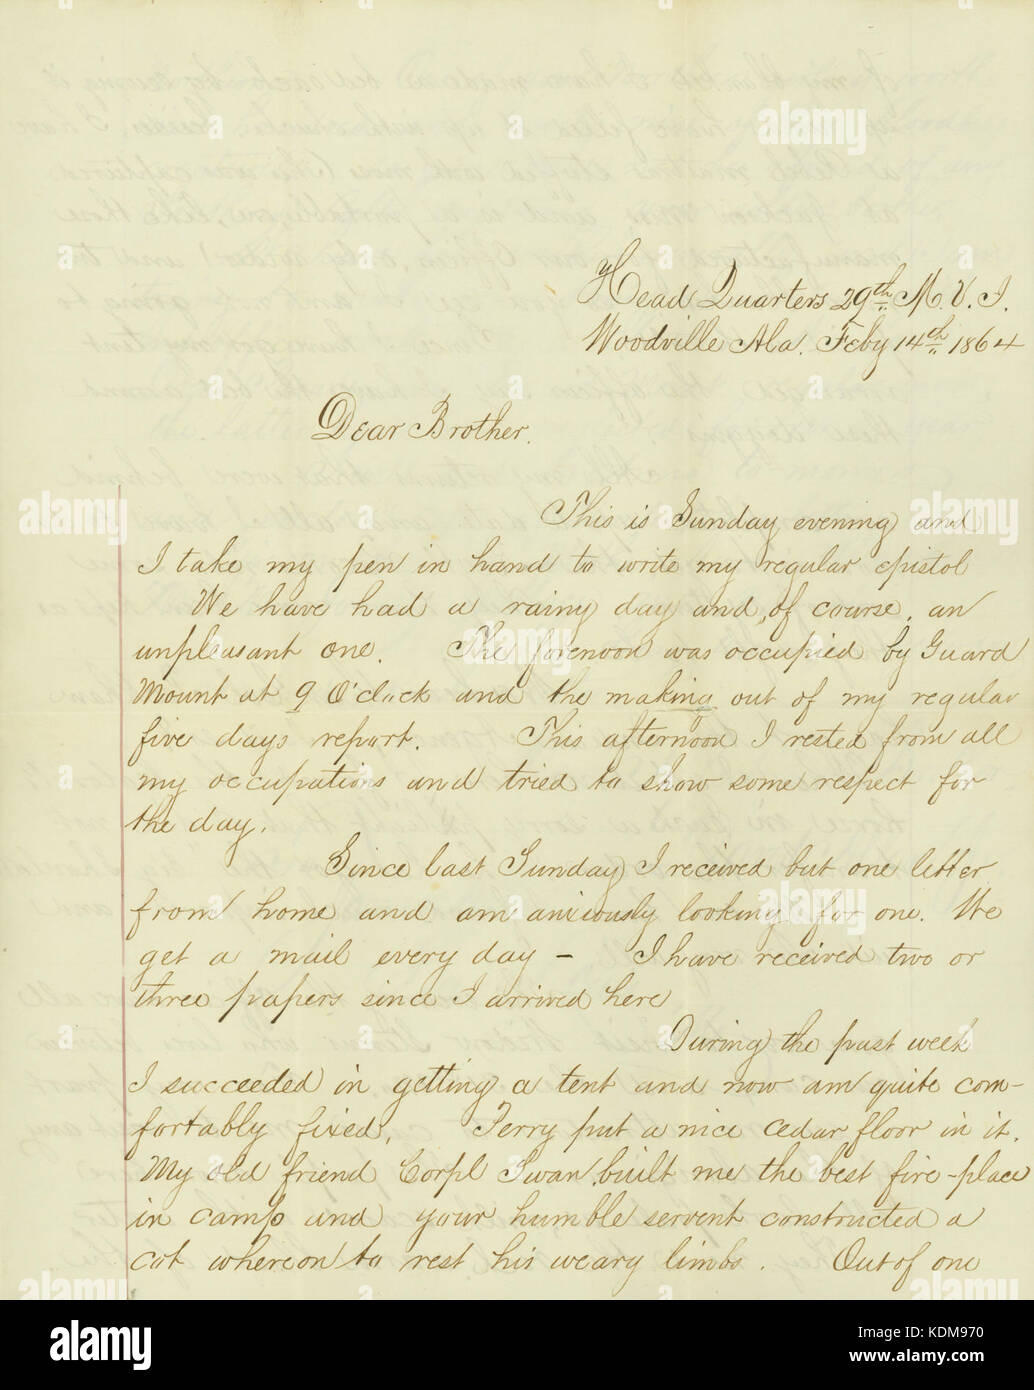 Head Quarters 29th M. V. I.
Woodville Ala. Feby 14th 1864
Dear Brother.
This is Sunday evening and
I take my pen in hand to write my regular epistol
We have had a rainy day and, of course, an
unpleasant one. The forenoon was occupied by Guard
Mount at 9 O'clock and the making out of my regular
five days report. This afternoon I rested from all
my occupations and tried to show some respect for
the day.
Since last Sunday I received but one letter
from home and am anxiously looking for one. We
get a mail every day – I have received two or
three papers since I arrived here
During the past week
I succeeded in getting a tent and now am quite com-
fortably fixed, Terry put a nice cedar floor in it.
My old friend Corpl Swan, built me the best fire-place
in camp and your humble servent constructed a
cot whereon to rest his weary limbs. Out of one
alamy
Image ID: KDM970
www.alamy.com